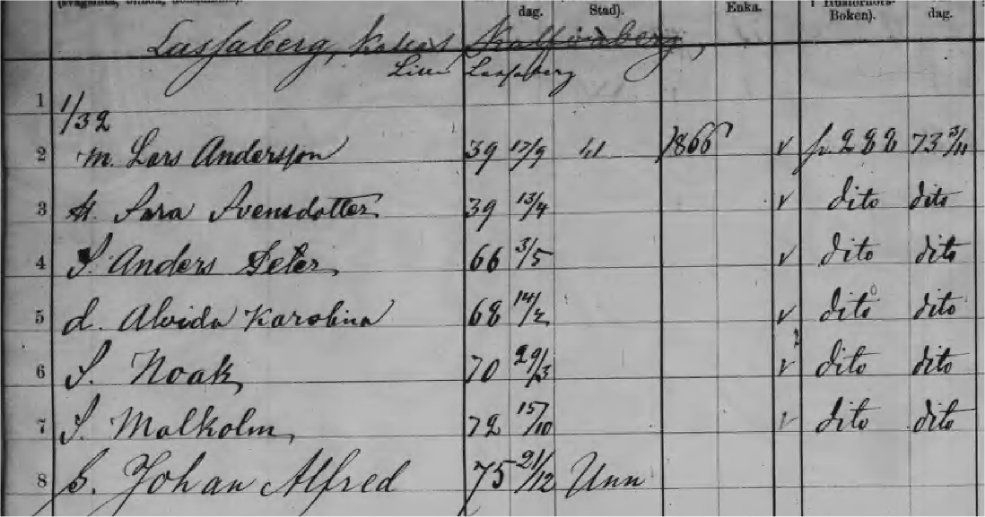 dag. Stad). Enka. Boken). dag.
Lassaberg,
Lilla Lassaberg
1
1/32
2 m. Lars Andersson 39 17/9 1866 v fr. 222 73 3/11
3 H. Sara Svensdotter 39 13/4 v dito dito
4 S. Anders Peter 66 3/5 v dito dito
5 d. Alvida Karolina 68 14/2 v dito dito
6 S. Noak 70 29/3 v dito dito
7 S. Malkolm, 72 15/10 v dito dito
8 S. Johan Alfred 75 21/12 Unn